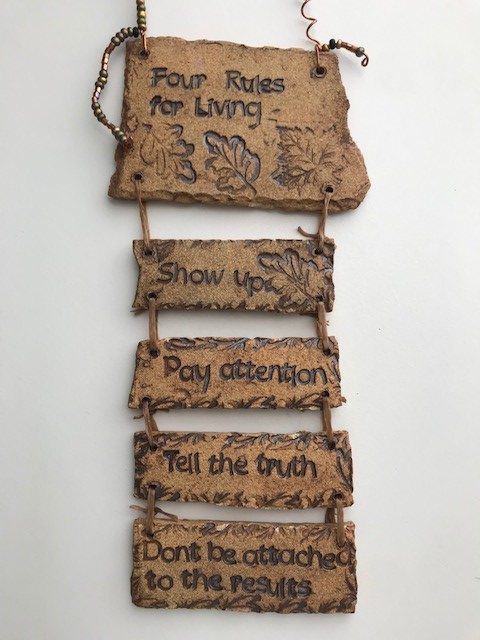 Four Rules
for Living
Show up
Pay attention
Tell the truth
Dont be attached
to the results